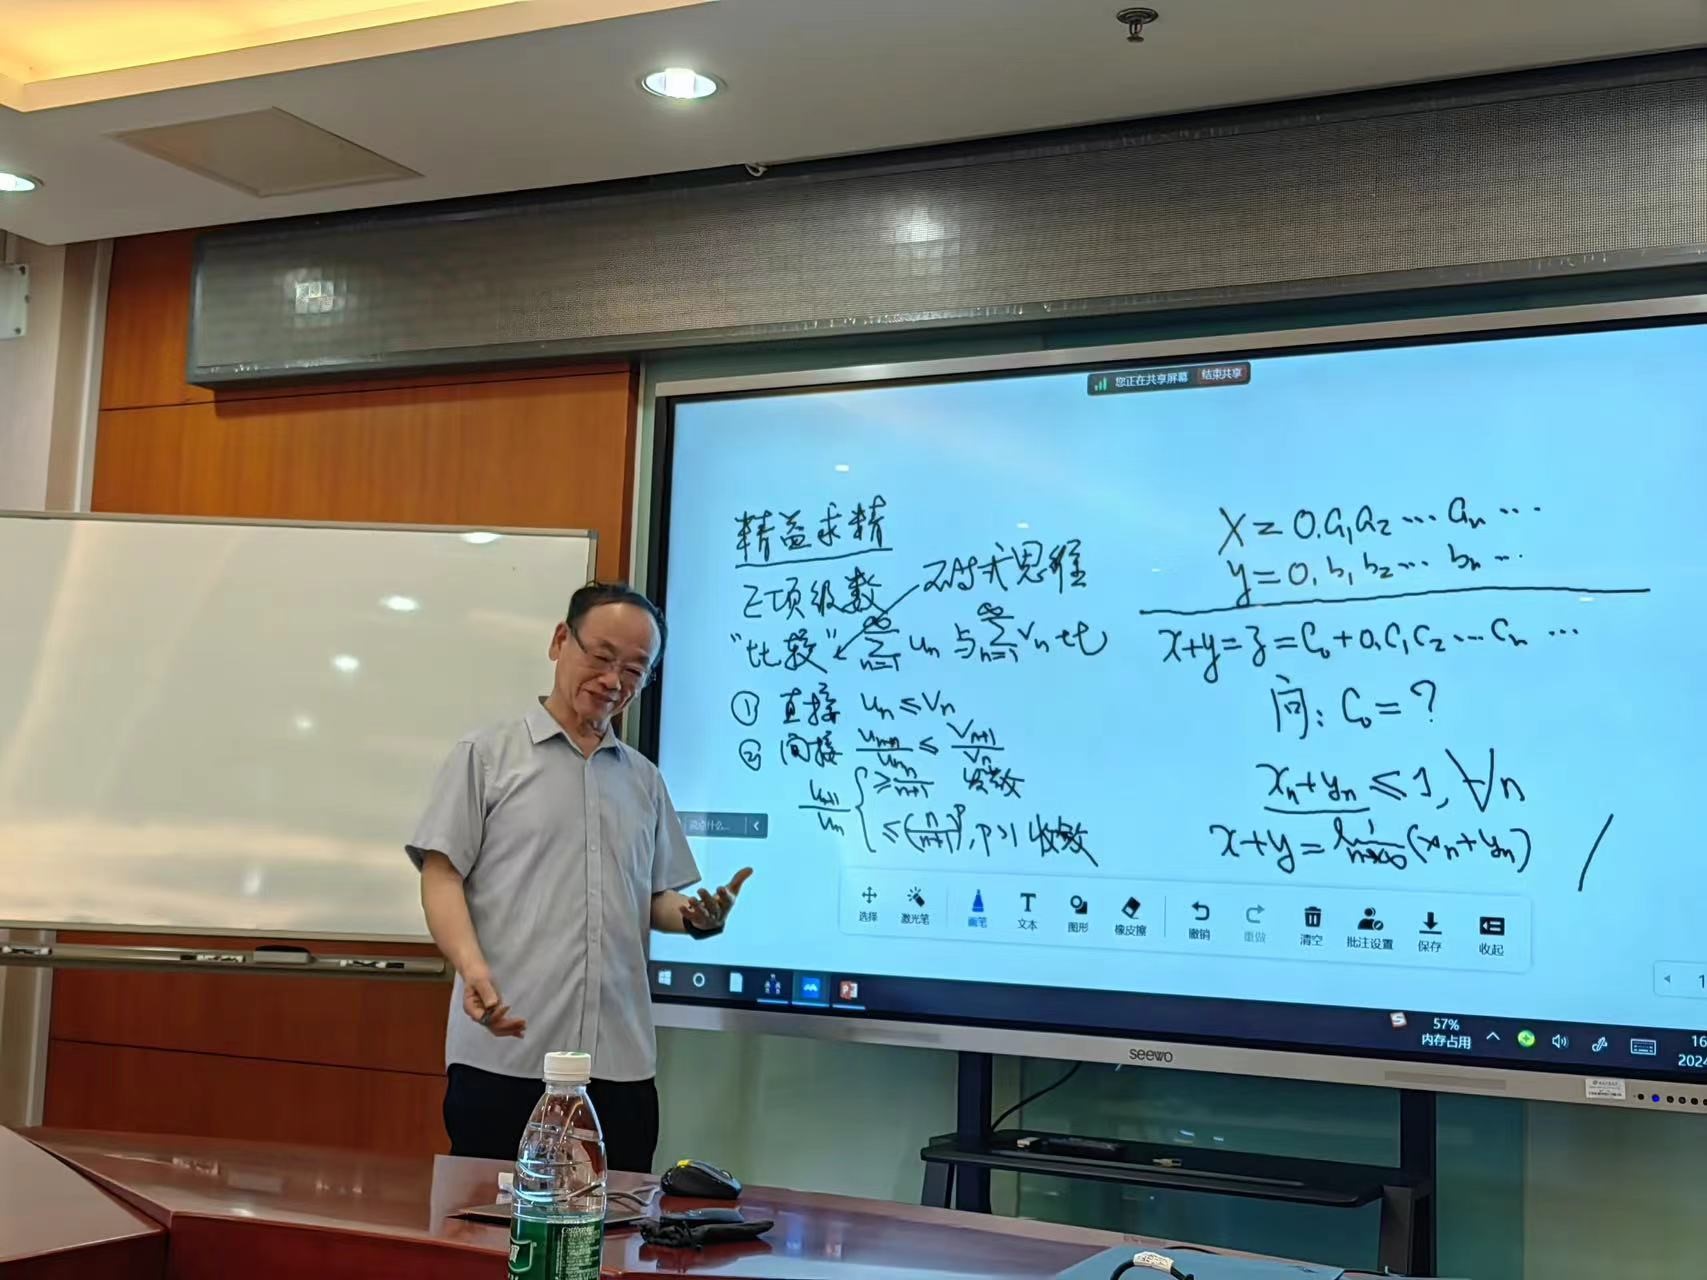 您正在共享屏幕 结束共享
精益求精
正项级数 对式思维
"比较" ∑_{n=1}^{∞} u_n 与 ∑_{n=1}^{∞} v_n 比
① 直接 u_n ≤ v_n
② 间接 u_{n+1}/u_n ≤ v_{n+1}/v_n
u_{n+1}/u_n { ≥ n/(n+1) 发散
≤ (n/(n+1))^p, p>1 收敛
x = 0.a_1 a_2 ⋯ a_n ⋯
y = 0.b_1 b_2 ⋯ b_n ⋯
x+y = z = C_0 + 0.C_1 C_2 ⋯ C_n ⋯
问: C_0 = ?
x_n + y_n ≤ 1, ∀n
x+y = lim_{n→∞} (x_n + y_n)
说点什么...
选择 激光笔 画笔 文本 图形 橡皮擦 撤销 重做 清空 批注设置 保存 收起
57%
内存占用
seewo